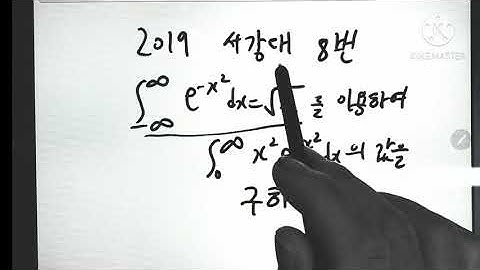 2019 서강대 8번
∫_{-∞}^{∞} e^{-x²}dx=√ 를 이용하여
∫_0^∞ x² e^{-x²}dx의 값을
구하
KINEMASTER